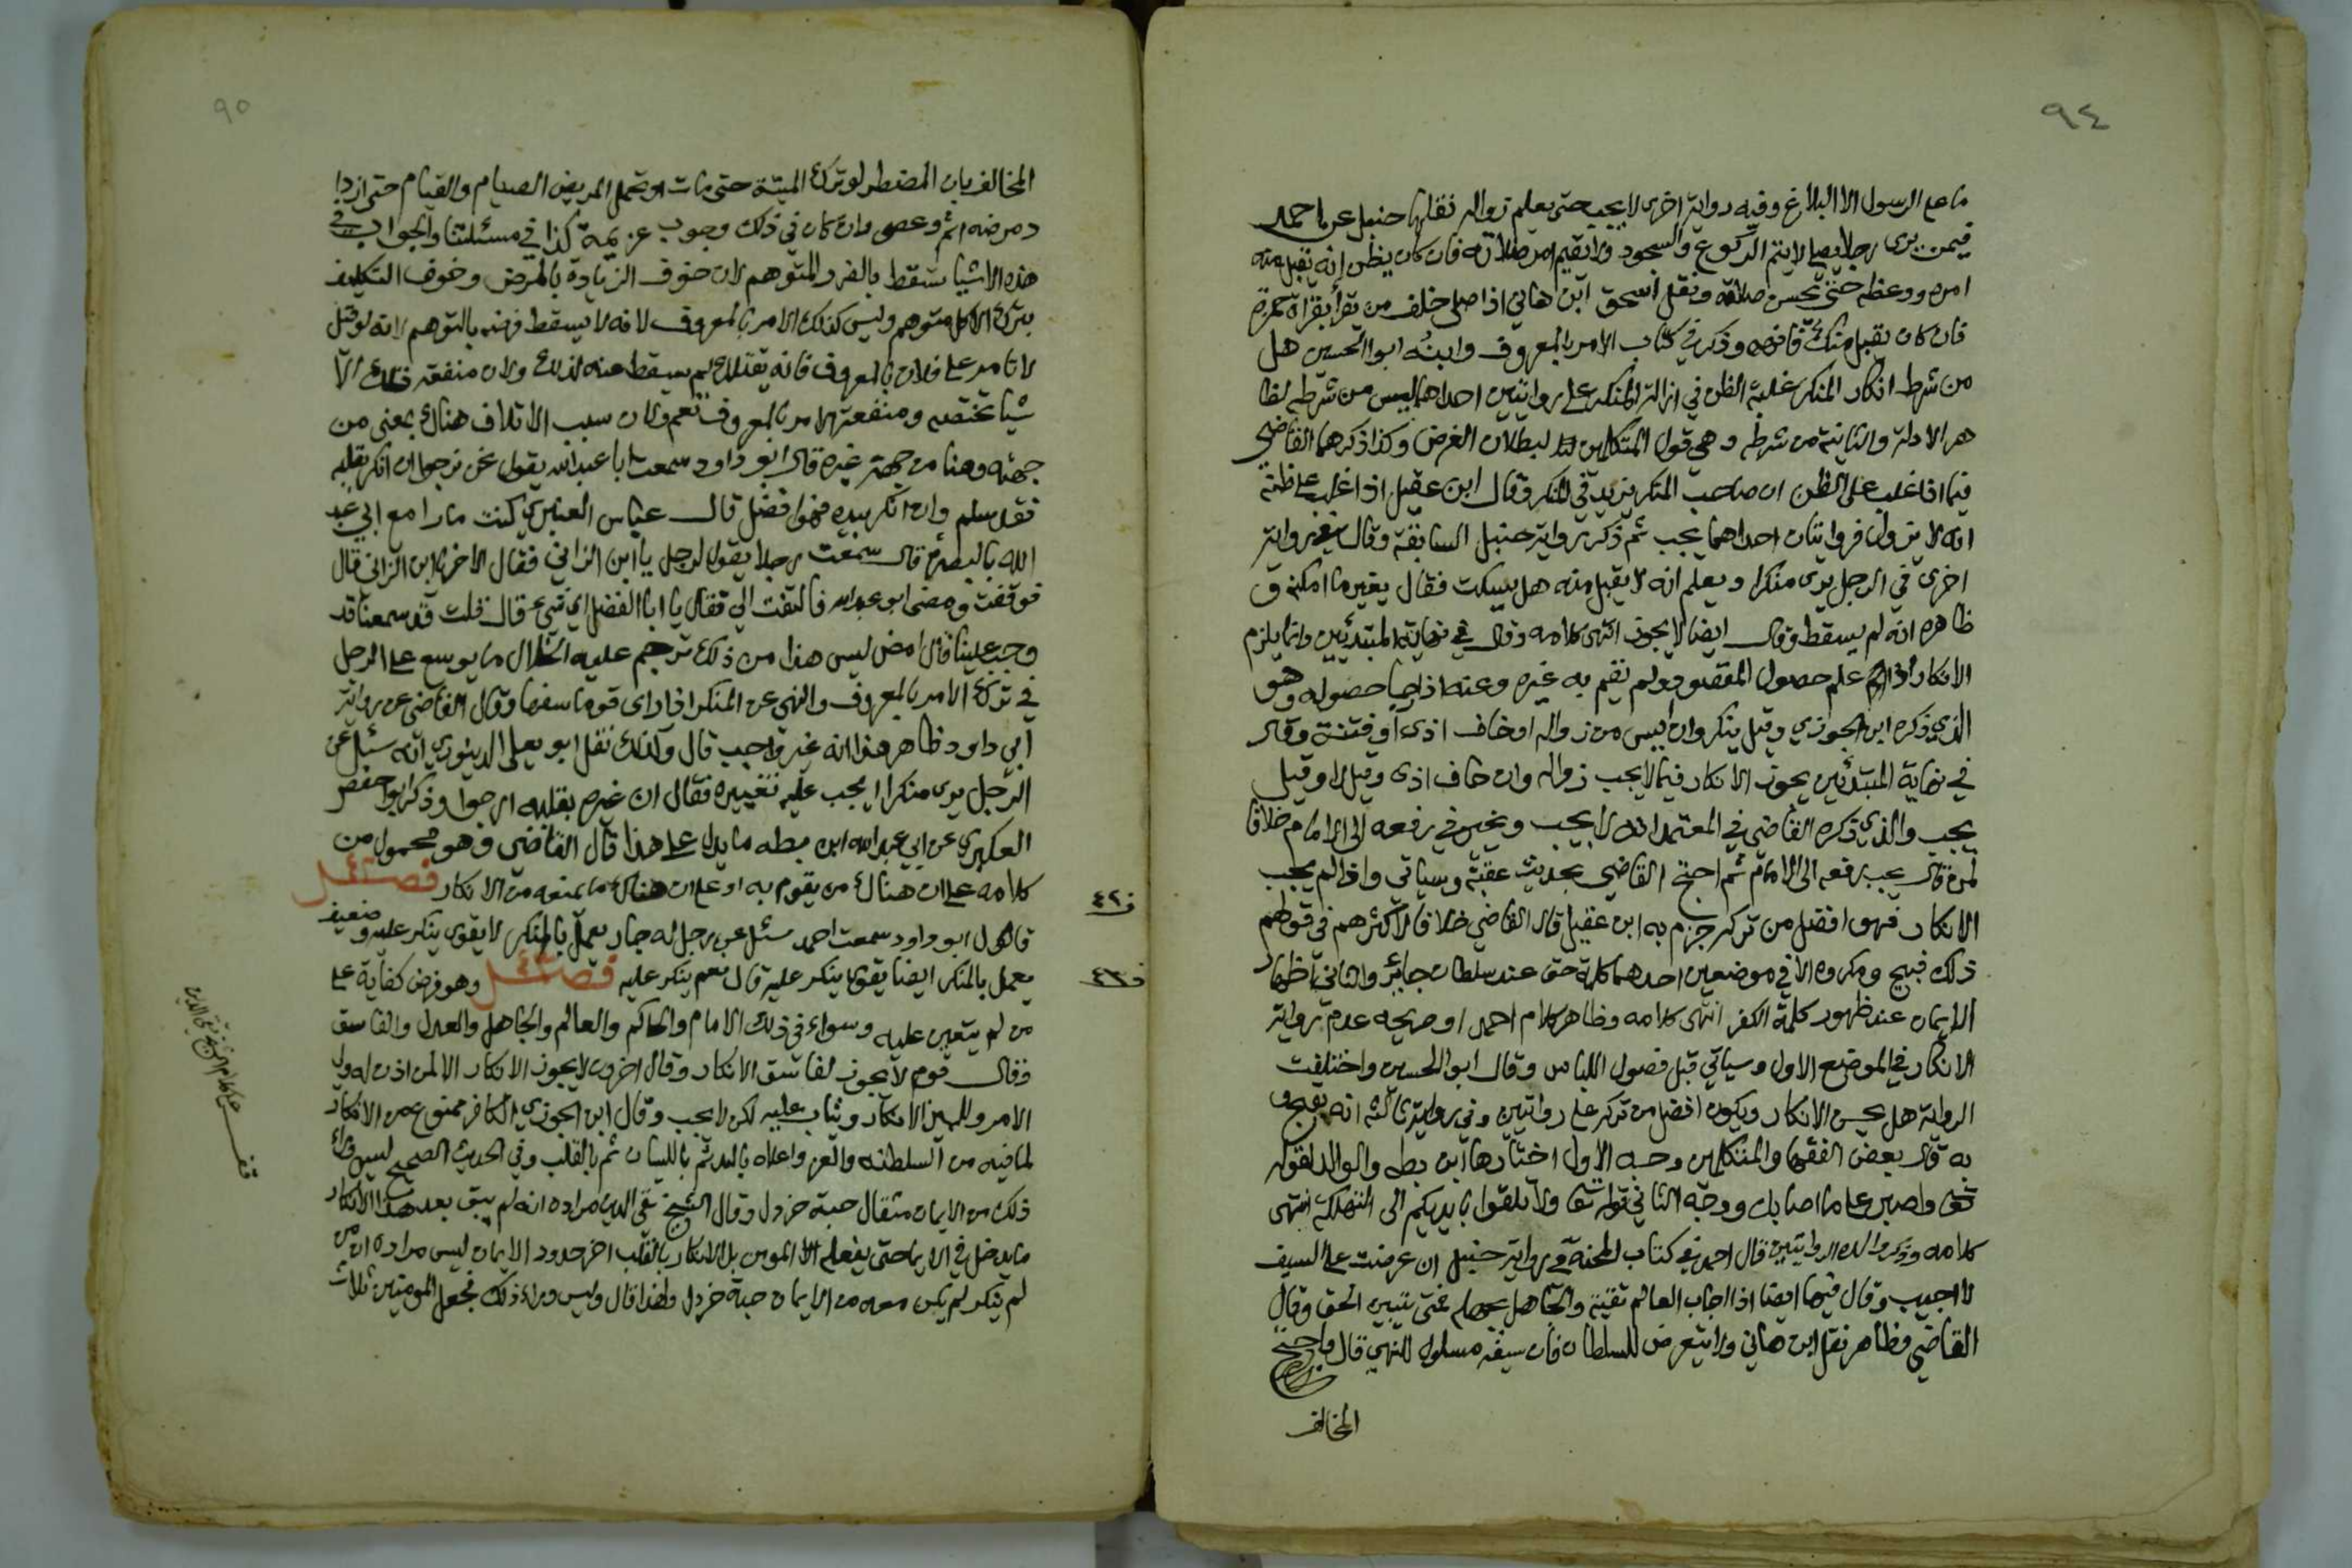 ٩٤
ما على الرسول الا البلاغ وفيه رواية اخرى لا يجب حتى يعلم زواله نقلها حنبل عن احمد
فيمن يرى رجلا يصلي لا يتم الركوع والسجود ولا يقيم امر صلاته فان كان يظن انه يقبل منه
امره ووعظه حتى يحسن صلاته ونقل اسحق ابن هاني اذا صلى خلف من يقرأ بقراة حمزة
فان كان يقبل منك فانهه وذكر في كتاب الامر بالمعروف وابنه ابو الحسين هل
من شرط انكار المنكر غلبة الظن في ازالة المنكر على روايتين احداهما ليس من شرطه لظا
هر الادلة والثانية من شرطه وهي قول المتكلمين لبطلان الغرض وكذا ذكرهما القاضي
فيما اذا غلب على الظن ان صاحب المنكر يزيد في المنكر وقال ابن عقيل اذا غلب على ظنه
انه لا يزول فروايتان احداهما يجب ثم ذكر رواية حنبل السابقة وقال في رواية
اخرى في الرجل يرى منكرا ويعلم انه لا يقبل منه هل يسكت فقال يغير ما امكنه و
ظاهره انه لم يسقط وقال ايضا لا يجوز انتهى كلامه وقال في نهاية المبتدئين وانما يلزم
الانكار اذا علم حصول المقصود ولم يقم به غيره وعنه اذا رجا حصوله وهو
الذي ذكره ابن الجوزي وقيل ينكر وان ايس من زواله او خاف اذى او فتنة وقال
في نهاية المبتدئين يجوز الانكار فيما لا يجب زواله وان خاف اذى وقيل لا وقيل
يجب والذي ذكره القاضي في المعتمد انه لا يجب ويخير في رفعه الى الامام خلافا
لمن قال يجب رفعه الى الامام ثم احتج القاضي بحديث عقبة وسياتي واذا لم يجب
الانكار فهو افضل من تركه جزم به ابن عقيل قال القاضي خلافا لاكثرهم في قولهم
ذلك قبيح ومكروه الا في موضعين احدهما كلمة حق عند سلطان جائر والثاني اظهار
الايمان عند ظهور كلمة الكفر انتهى كلامه وظاهر كلام احمد او صريحه عدم رواية
الانكار في الموضع الاول وسياتي قبل فصول اللباس وقال ابو الحسين واختلفت
الرواية هل يحسن الانكار ويكون افضل من تركه على روايتين وفي رواية ثالثة انه يقبح و
به قال بعض الفقها والمتكلمين وجه الاول اختارها ابن بطه والوالد لقوله
تعالى واصبر على ما اصابك ووجه الثاني قوله تعالى ولا تلقوا بايديكم الى التهلكة انتهى
كلامه وذكر والده الروايتين قال احمد في كتاب المحنة في رواية حنبل ان عرضت على السيف
لا اجيب وقال فيها ايضا اذا اجاب العالم تقية والجاهل يجهل فمتى يتبين الحق وقال
القاضي وظاهر نقل ابن هاني ولا يتعرض للسلطان فان سيفه مسلول للنهي قال واحتج
المخالف
٩٥
المخالف بان المضطر لو ترك الميتة حتى مات او تحمل المريض الصيام والقيام حتى ازدا
د مرضه اثم وعصى وان كان في ذلك وجوب عزيمة كذا في مسئلتنا والجواب في
هذه الاشيا تسقط بالضرر المتوهم لان خوف الزيادة بالمرض وخوف التكليف
بترك الاكل متوهم وليس كذلك الامر بالمعروف لانه لا يسقط فرضه بالتوهم لانه لو قيل
لا تامر على فلان بالمعروف فانه يقتلك لم يسقط عنه لذلك ولان منفعة تلك الا
شيا تختصه ومنفعة الامر بالمعروف تعم ولان سبب الاتلاف هناك بمعنى من
جهته وهنا من جهة غيره قال ابو داود سمعت ابا عبد الله يقول نحن نرجوا ان انكر بقلبه
فقد سلم وان انكر بيده فهو افضل قال عباس العنبري كنت مارا مع ابي عبد
الله بالبصرة قال سمعت رجلا يقول لرجل يا ابن الزاني فقال الاخر يا ابن الزاني قال
فوقفت ومضى ابو عبد الله فالتفت الي فقال يا ابا الفضل اي شيء قال فقلت قد سمعنا قد
وجب علينا قال امض ليس هذا من ذلك ترجم عليه الخلال ما يوسع على الرجل
في ترك الامر بالمعروف والنهي عن المنكر اذا راى قوما سفها وقال القاضي عن رواية
ابي داود ظاهر هذا انه غير واجب قال وكذلك نقل ابو يعلى الدينوري انه سئل عن
الرجل يرى منكرا ايجب عليه تغييره فقال ان غيره بقلبه ارجوا وذكر ابو حفص
العكبري عن ابي عبد الله ابن بطه ما يدل على هذا قال القاضي وهو محمول من
كلامه على ان هناك من يقوم به او على ان هناك ما يمنعه من الانكار فصل
ف٤٢
قال ابو داود سمعت احمد سئل عن رجل له جار يعمل بالمنكر لا يقوى ينكر عليه وضعيف
يعمل بالمنكر ايضا يقوى ينكر عليه قال نعم ينكر عليه فصل وهو فرض كفاية على
ف٤٣
من لم يتعين عليه وسواء في ذلك الامام والحاكم والعالم والجاهل والعدل والفاسق
وقال قوم لا يجوز لفاسق الانكار وقال اخرون لا يجوز الانكار الا لمن اذن له ولي
الامر وللمميز الانكار ويثاب عليه لكن لا يجب وقال ابن الجوزي الكافر ممنوع من الانكار
لما فيه من السلطنة والعز واعلاه باليد ثم باللسان ثم بالقلب وفي الحديث الصحيح ليس وراء
ذلك من الايمان مثقال حبة خردل وقال الشيخ تقي الدين مراده انه لم يبق بعد هذا الانكار
ما يدخل في الايمان حتى يفعله المومن بل الانكار بالقلب اخر حدود الايمان ليس مراده ان من
لم ينكر لم يكن معه من الايمان حبة خردل ولهذا قال وليس وراء ذلك فجعل المومنين ثلاث
قف على كلام الشيخ تقي الدين